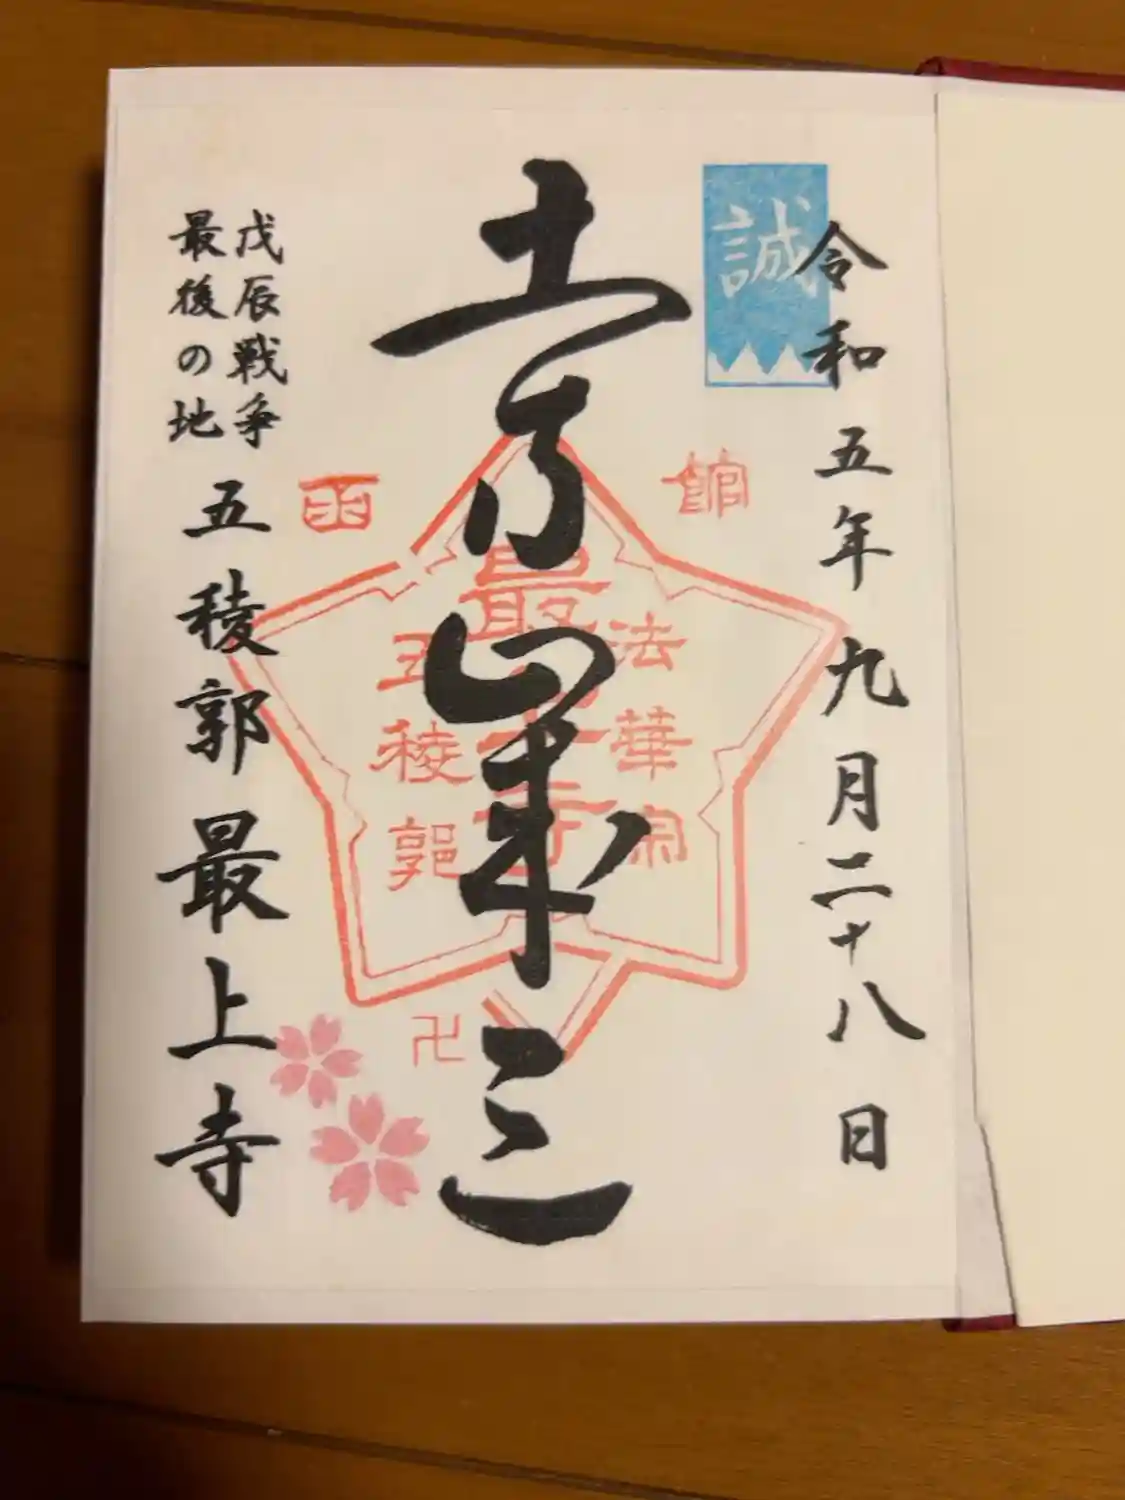 令和五年九月二十八日
誠
土方歳三
函館
法華宗
最上寺
五稜郭
卍
戊辰戦争
最後の地
五稜郭 最上寺